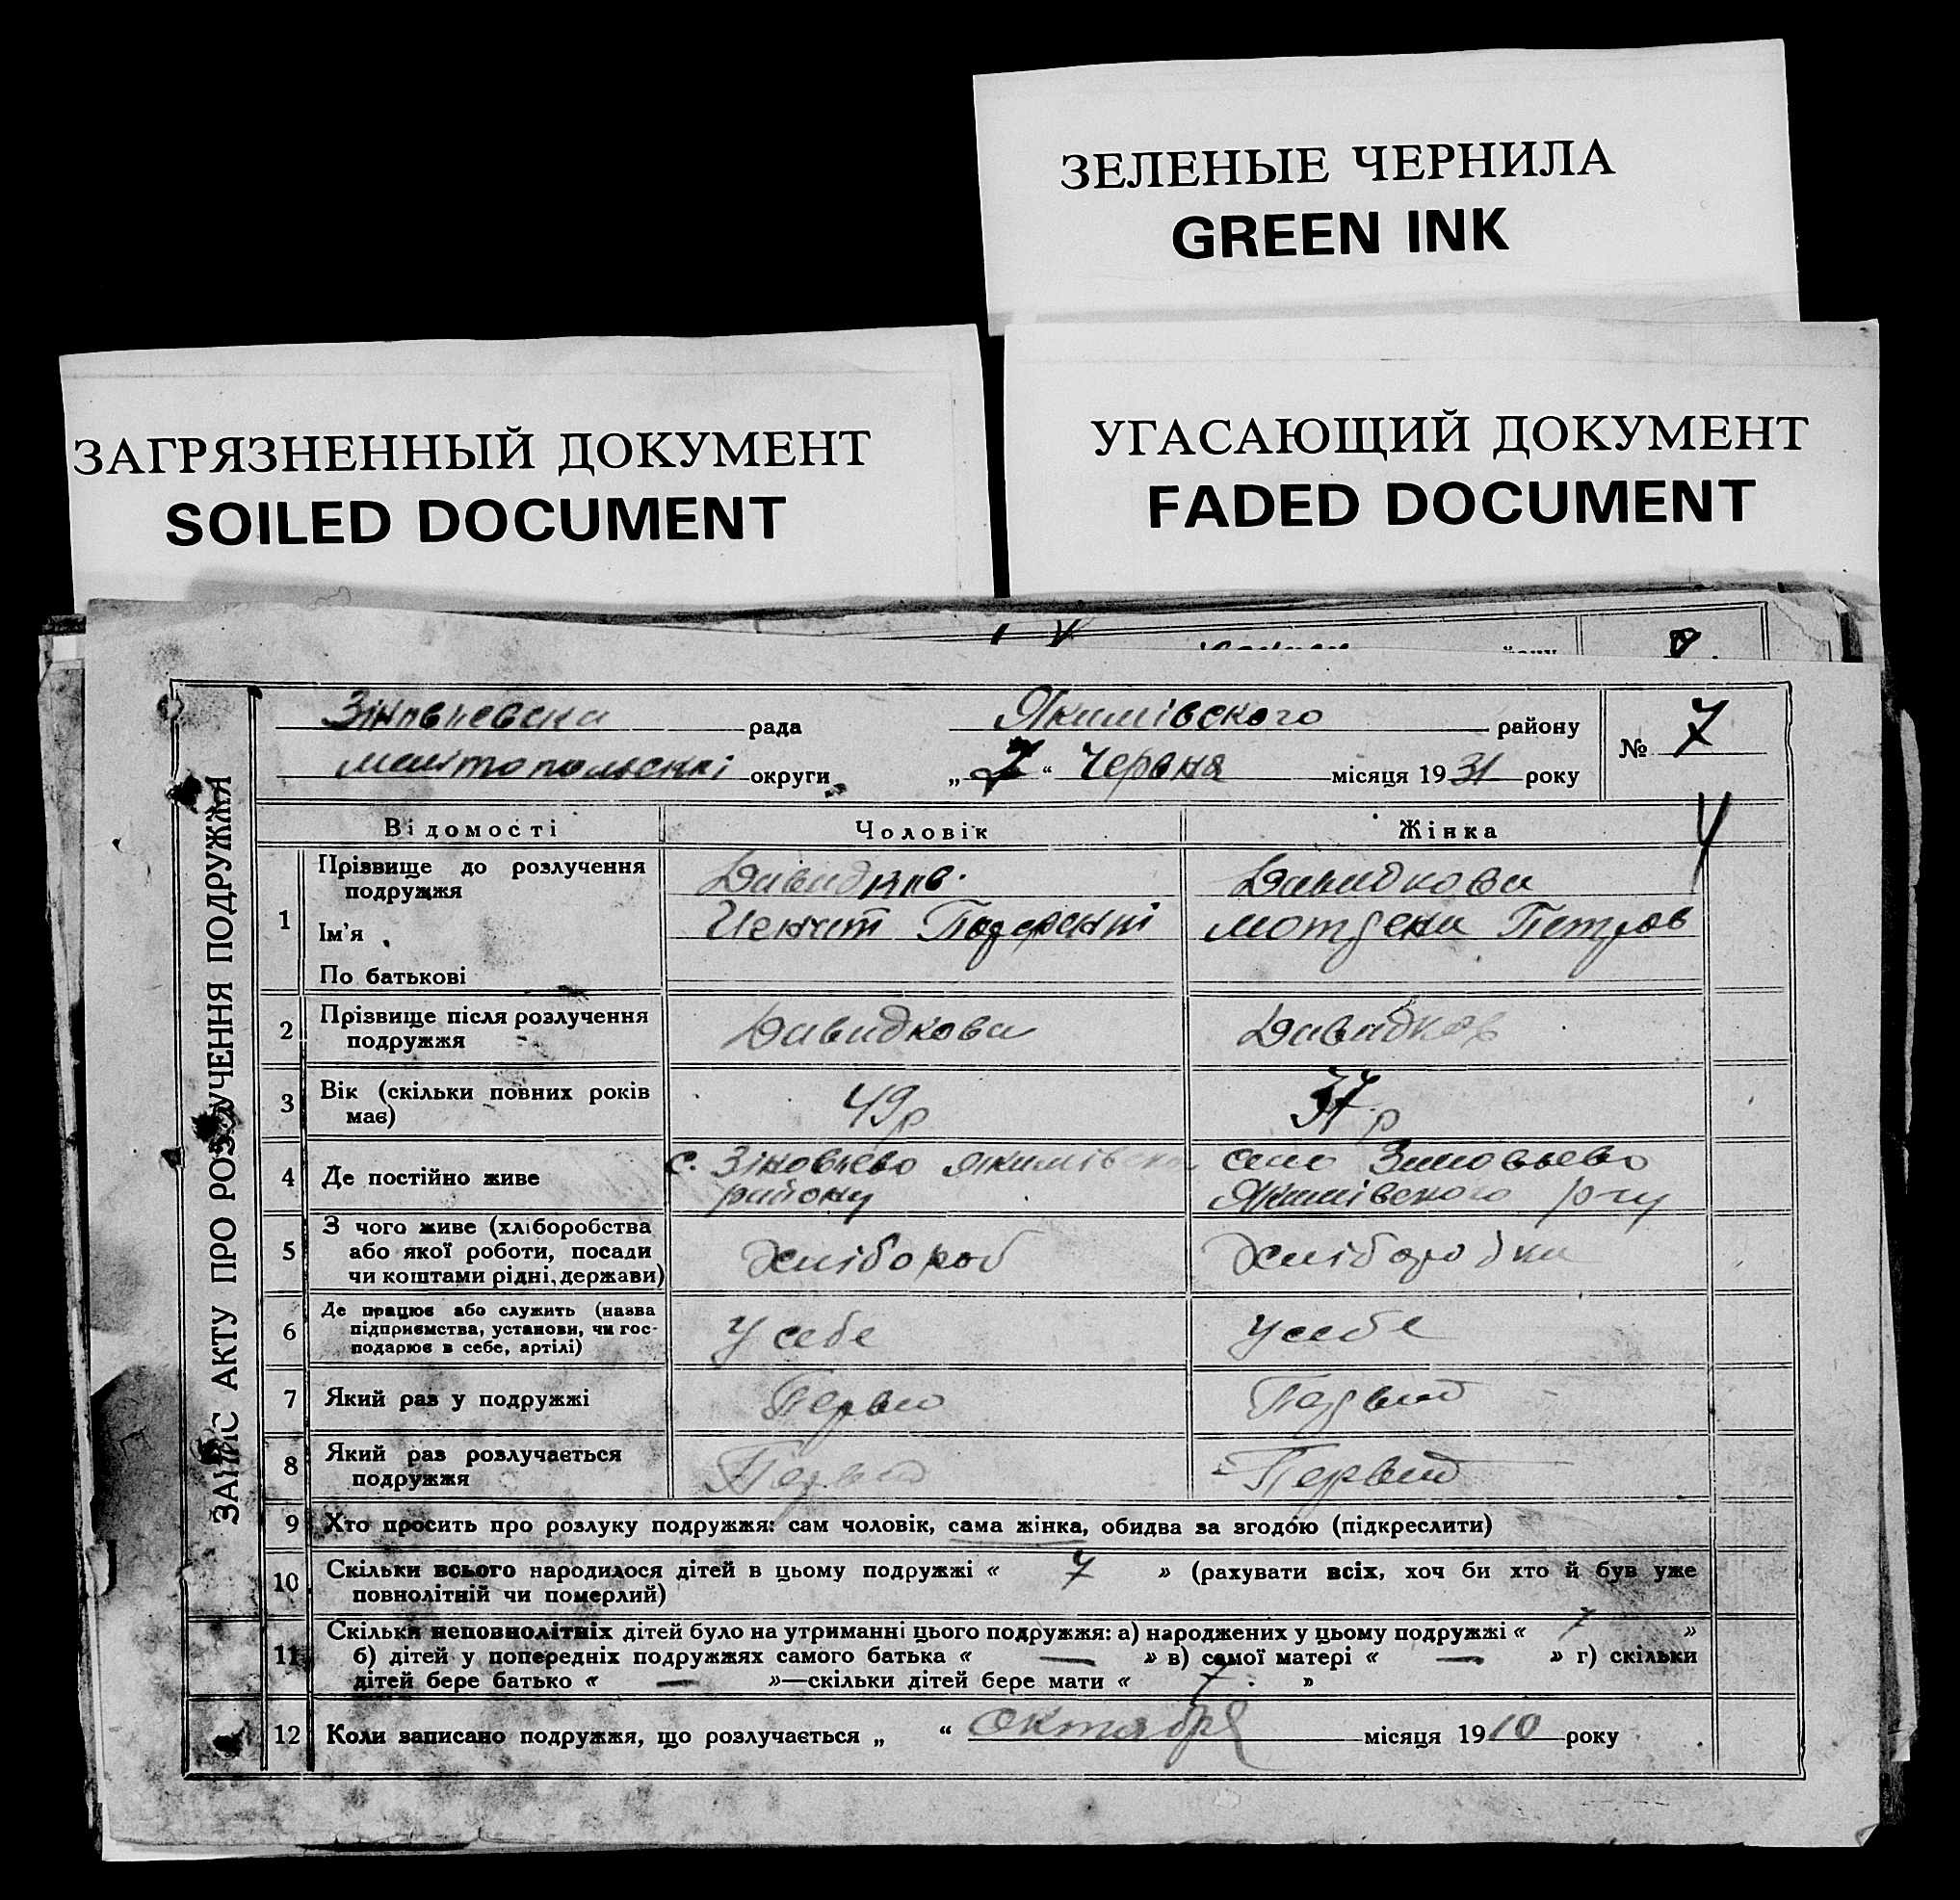 ЗЕЛЕНЫЕ ЧЕРНИЛА
GREEN INK
ЗАГРЯЗНЕННЫЙ ДОКУМЕНТ
SOILED DOCUMENT
УГАСАЮЩИЙ ДОКУМЕНТ
FADED DOCUMENT
ЗАПИС АКТУ ПРО РОЗЛУЧЕННЯ ПОДРУЖЖЯ
Зіновьевска рада Якимівского району
округи „ “ Червня місяця 1931 року
№ 7
Відомості Чоловік Жінка
1 Прізвище до розлучення
подружжя Давидков. Давидкова
Ім'я Петров
По батькові
2 Прізвище після розлучення
подружжя Давидкова Давидков
3 Вік (скільки повних років
має) 49 р р
4 Де постійно живе с. Зіновьево Якимівско село Зиновьево
району Якимівского р-ну
5 З чого живе (хліборобства
або якої роботи, посади
чи коштами рідні, держави) Хлібороб Хліборобка
6 Де працює або служить (назва
підприємства, установи, чи гос-
подарює в себе, артілі) У себе У себе
7 Який раз у подружжі Первий
8 Який раз розлучається
подружжя Первий Первий
9 Хто просить про розлуку подружжя: сам чоловік, сама жінка, обидва за згодою (підкреслити)
10 Скільки всього народилося дітей в цьому подружжі « 7 » (рахувати всіх, хоч би хто й був уже
повнолітній чи померлий)
11 Скільки неповнолітніх дітей було на утриманні цього подружжя: а) народжених у цьому подружжі « 7 »
б) дітей у попередніх подружжях самого батька « — » в) самої матері « — » г) скільки
дітей бере батько « — »—скільки дітей бере мати « 7 »
12 Коли записано подружжя, що розлучається „ “ Октября місяця 1910 року